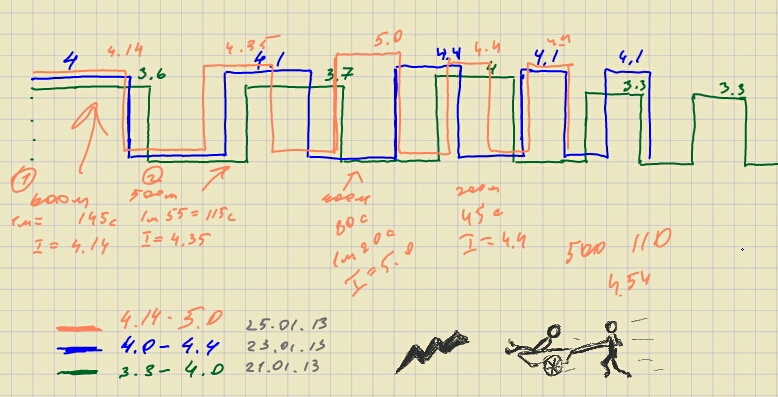 4 4.14 3.6
4.35 4.1 3.7
5.0
4.4 4.4 4
4.1 4.4
4.1 3.3
3.3
1 600м
145с
I = 4.14
2 500м
1м 55 = 115с
I = 4.35
400м
80с
1м 20с
I = 5.0
200м
45с
I = 4.4
500 110
4.54
4.14 - 5.0 25.01.13
4.0 - 4.4 23.01.13
3.3 - 4.0 21.01.13